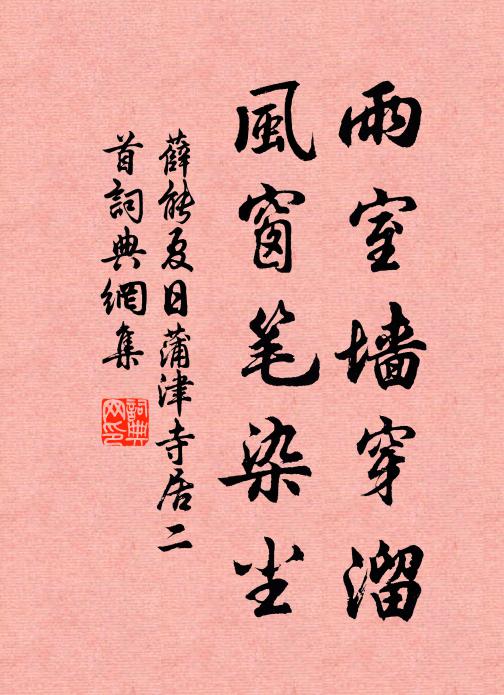 雨室墙穿溜
風窗笔染尘
薛能夏日蒲津寺居二
首詞典網集
詞典網印